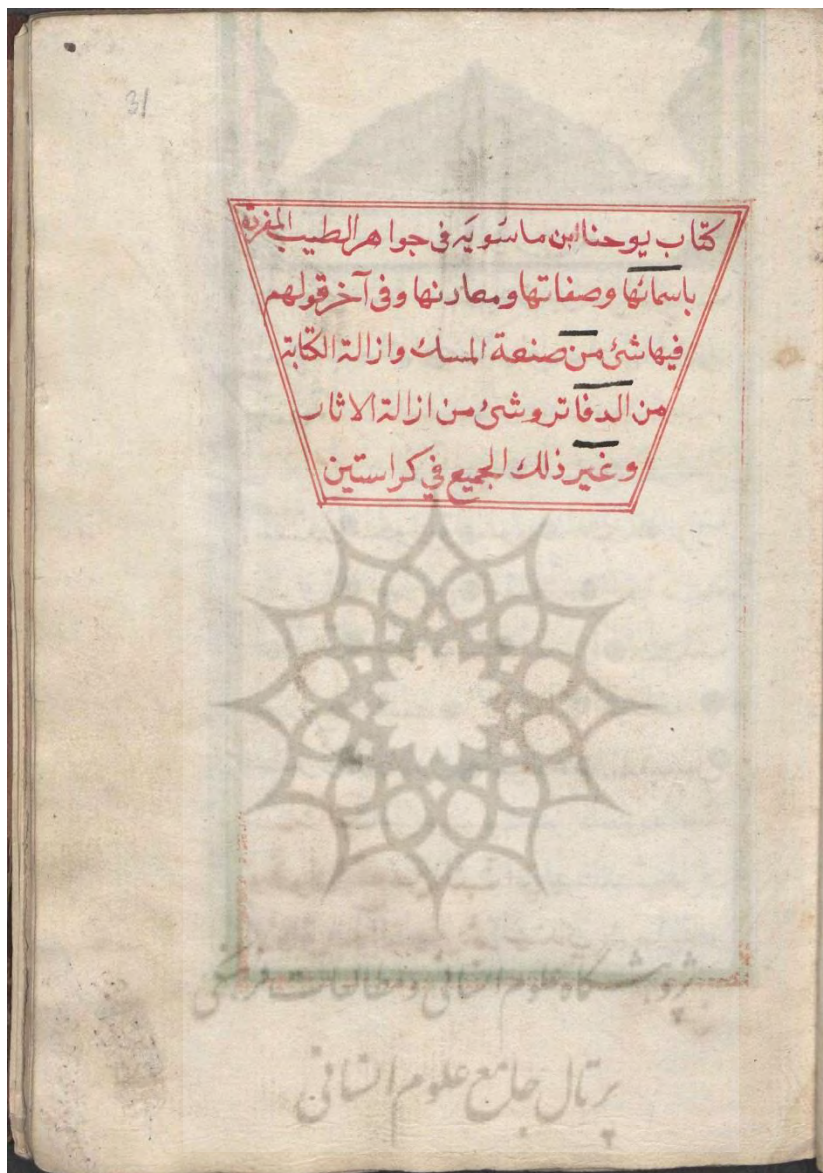 31
كتاب يوحنا ابن ماسويه فى جواهر الطيب المفرده
باسمائها وصفاتها ومعادنها وفى آخر قولهم
فيها شئ من صنعة المسك وازالة الكتابة
من الدفاتر وشئ من ازالة الاثار
وغير ذلك الجميع في كراستين
پژوهشگاه علوم انسانی و مطالعات فرهنگی
پرتال جامع علوم انسانی